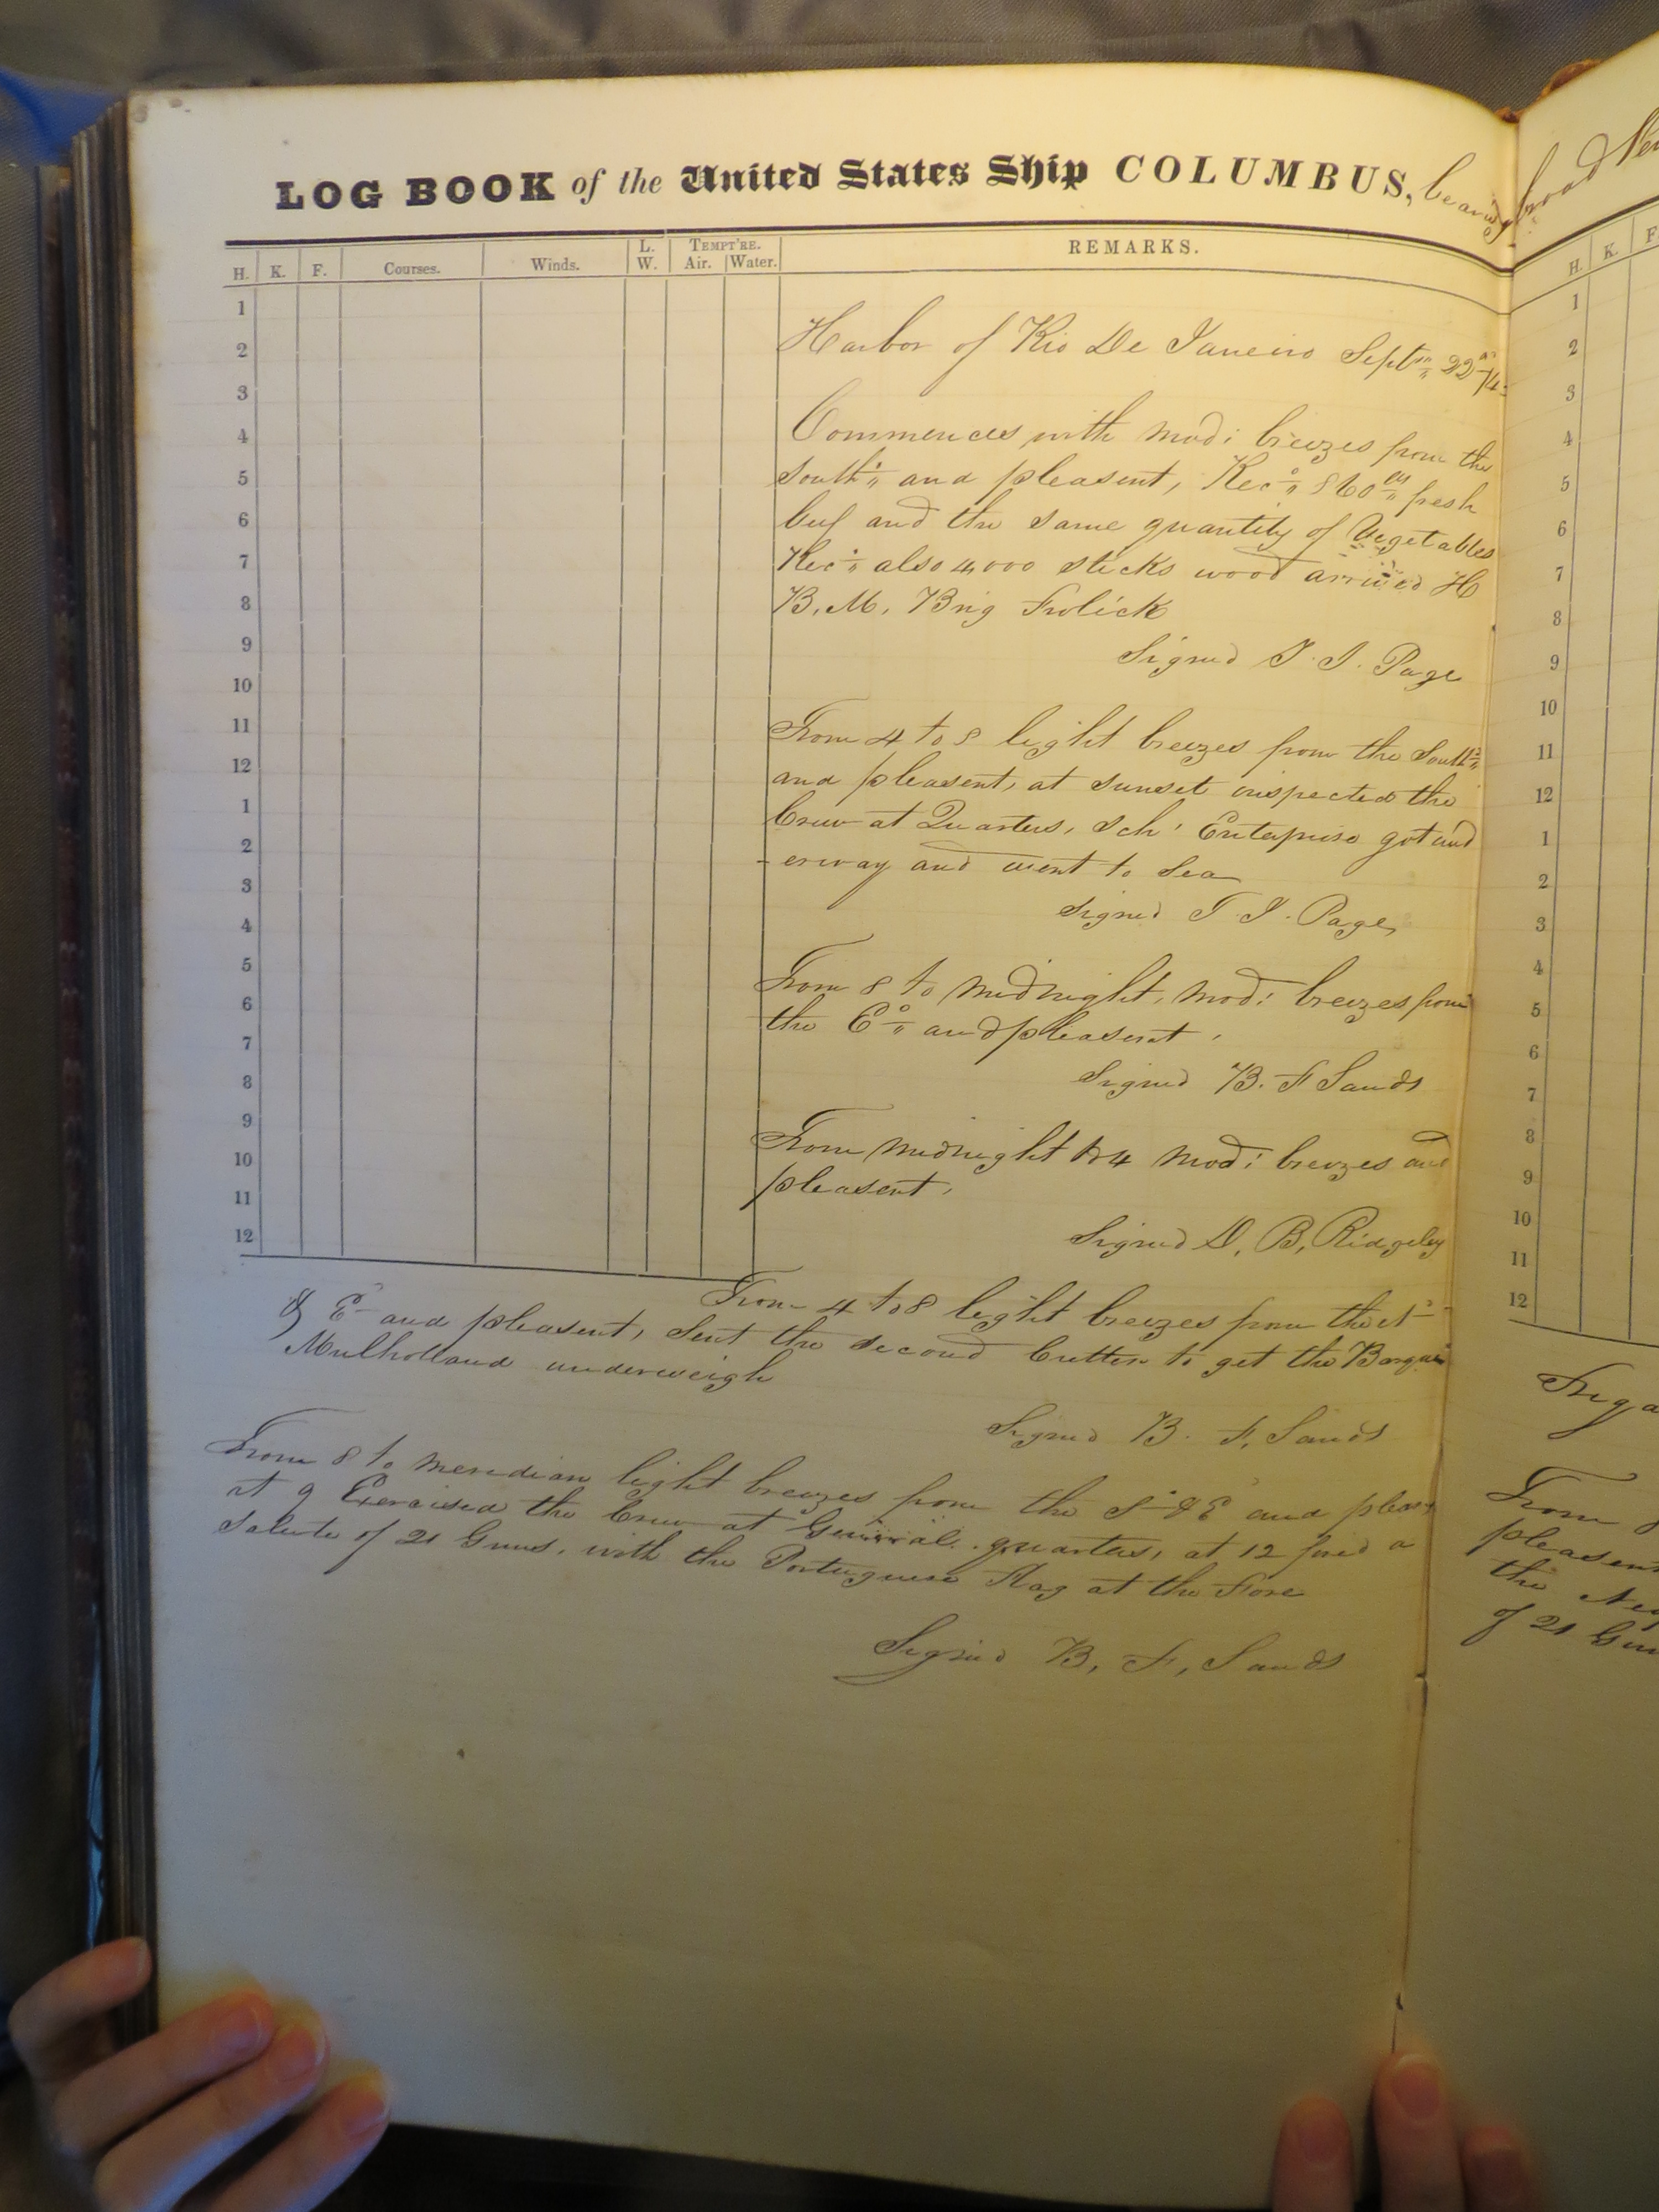 LOG BOOK of the United States Ship COLUMBUS, bearing broad
H. K. F. Courses. Winds. L. W. TEMPT'RE. Air. Water. REMARKS.
1
2
3
4
5
6
7
8
9
10
11
12
1
2
3
4
5
6
7
8
9
10
11
12
Harbor of Rio De Janeiro Septm 22d
Commences with mod: breezes from the
South'd and pleasent, Rec'd 860 lbs fresh
beef and the same quantity of Vegetables
Rec'd also 4,000 sticks wood arrived H
B, M, Brig Frolick
Signed T. J. Page
From 4 to 8 light breezes from the South'd
and pleasent, at sunset inspected the
Crew at Quarters, Sch' Enterprise got und
-erway and went to Sea
Signed T. J. Page
From 8 to midnight, mod: breezes from
the E'd and pleasent,
Signed B. F Sands
From midnight to 4 mod: breezes and
pleasent,
Signed D, B, Ridgeley
From 4 to 8 light breezes from the
& E and pleasent, sent the second Cutter to get the Barque
Mulholland underweigh
Signed B. F. Sands
From 8 to meridian light breezes from the S'd & E and pleas
at 9 Exercised the Crew at General quarters, at 12 fired a
Salute of 21 Guns, with the Portuguese Flag at the Fore
Signed B, F, Sands
H. K. F
1
2
3
4
5
6
7
8
9
10
11
12
1
2
3
4
5
6
7
8
9
10
11
12
From
pleasent
the
of 21 Gun